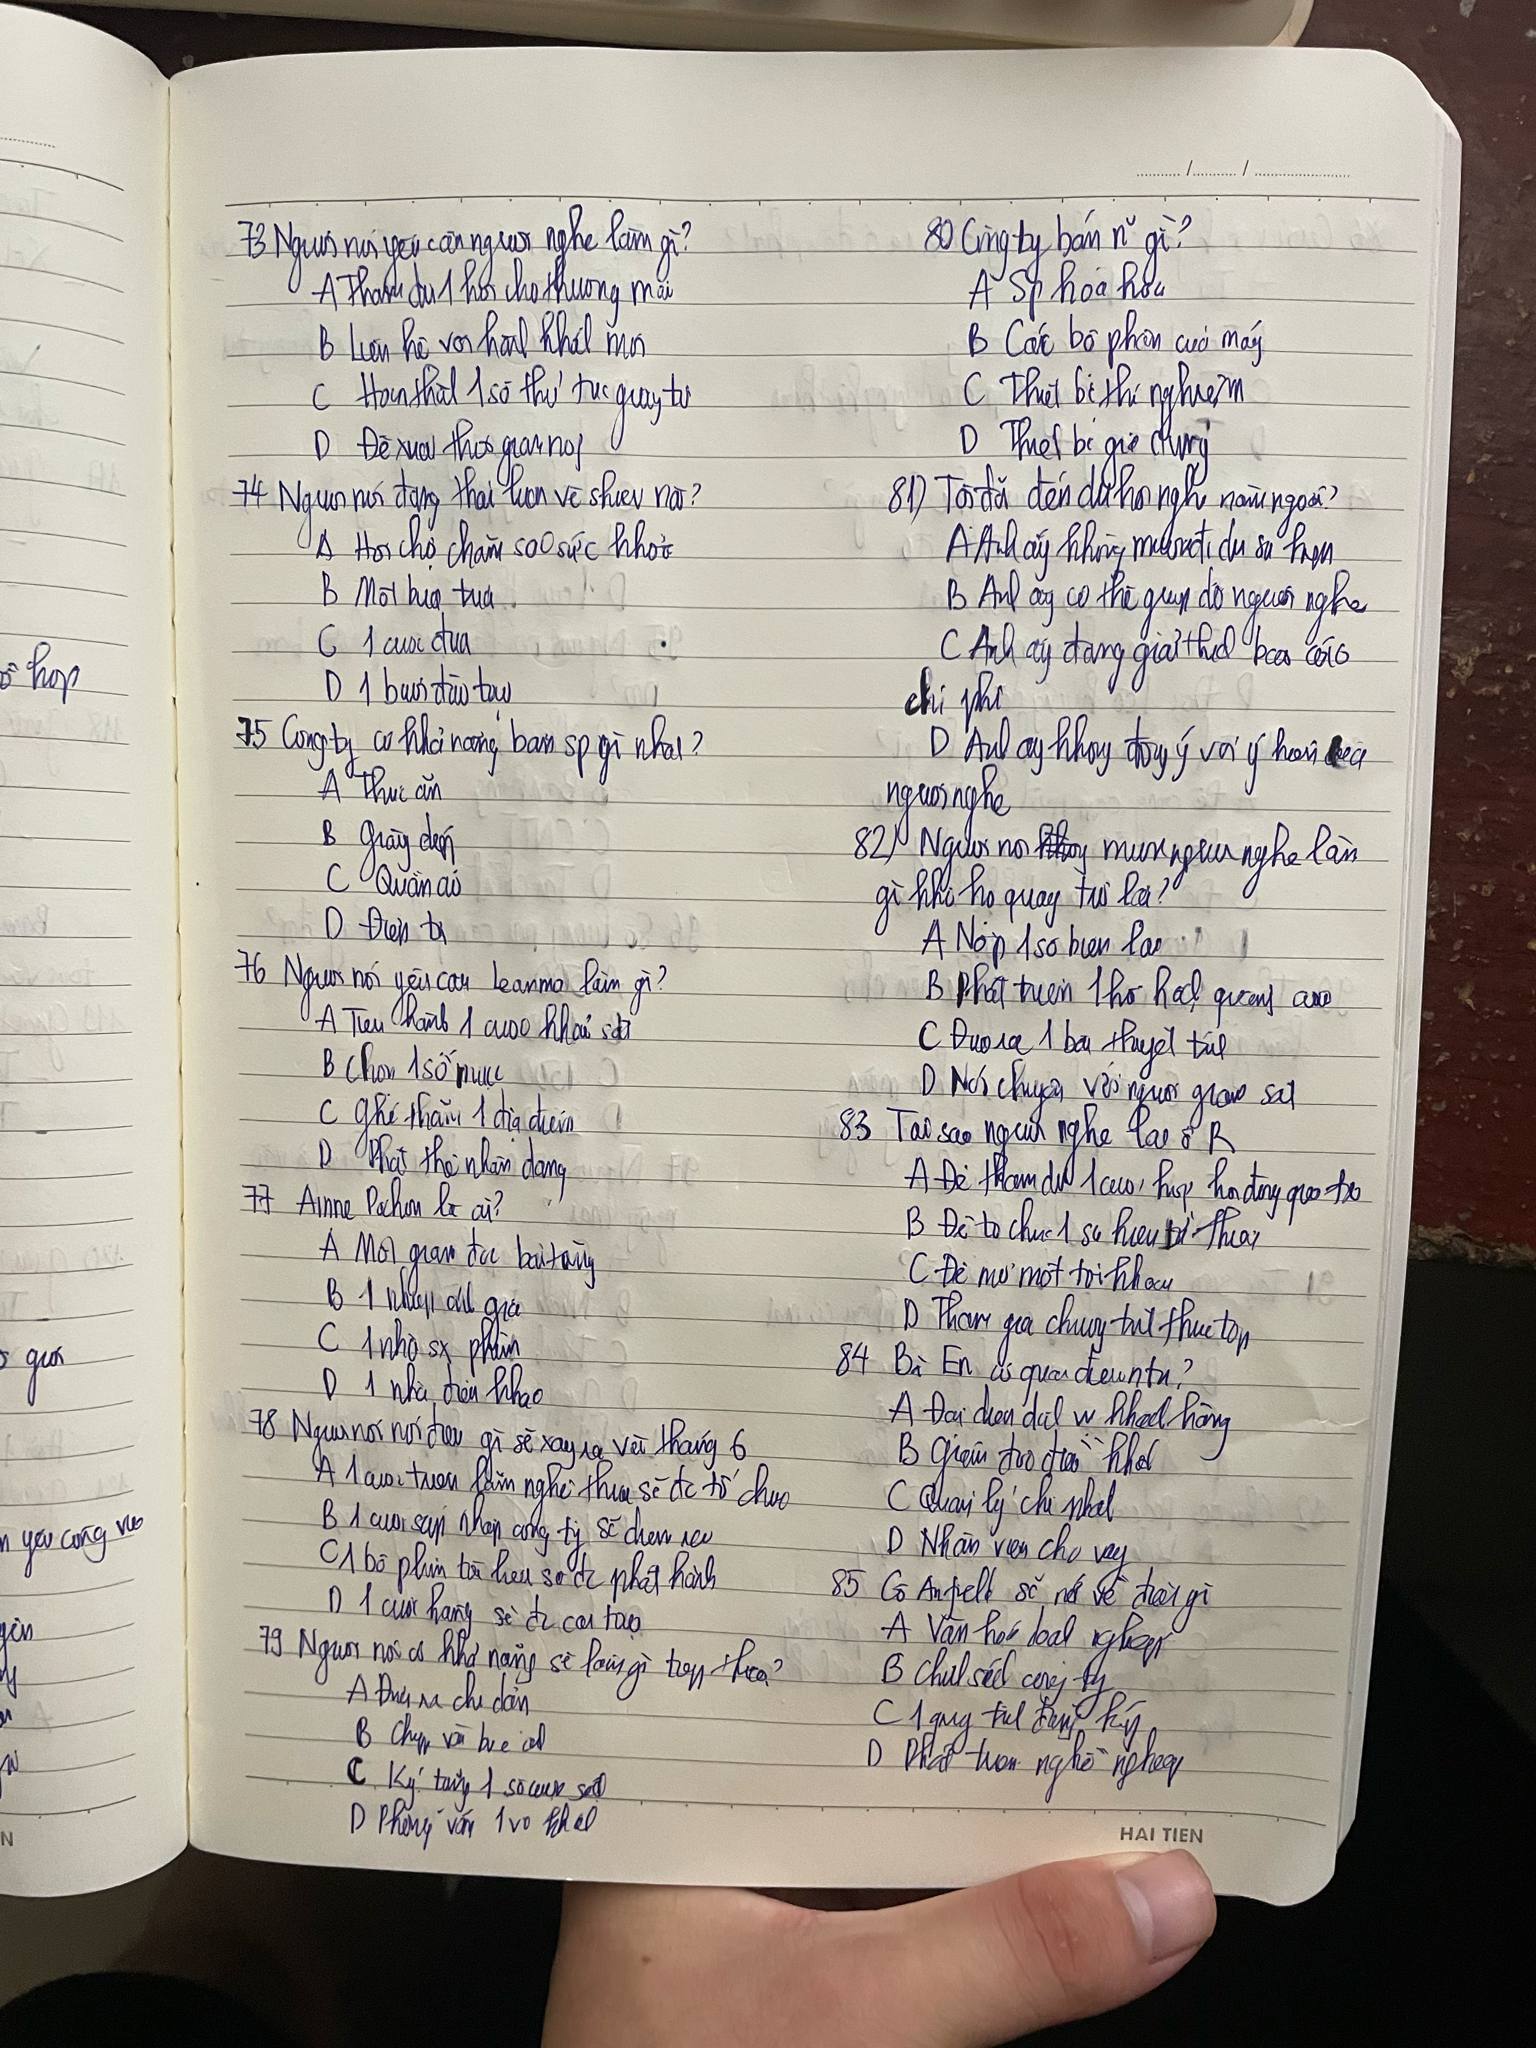 73 Người nói yêu cầu người nghe làm gì?
A Tham dự 1 hội chợ thương mại
B Liên hệ với hành khách mới
C Hoàn thành 1 số thủ tục giấy tờ
D Đề xuất thời gian nói
74 Người nói đang thảo luận về sự kiện nào?
A Hội chợ chăm soó sức khoẻ
B Một bữa
C 1 cuộc đua
D 1 buổi đào tạo
75 Công ty có khả năng bán sp gì nhất?
A Thức ăn
B Giày dép
C Quần áo
D Điện tử
76 Người nói yêu cầu Leanma làm gì?
A Tiến hành 1 cuộc khảo sát
B Chọn 1 số
C Ghé thăm 1 địa điểm
D Phát thẻ nhận dạng
77 Anne là ai?
A Một giám đốc bảo tàng
B 1 nhiếp ảnh gia
C 1 nhà sx phim
D 1 nhà điêu khắc
78 Người nói nói điều gì sẽ xảy ra vào tháng 6
A 1 cuộc triển lãm nghệ thuật sẽ đc tổ chức
B 1 cuộc sáp nhập công ty sẽ diễn ra
C 1 bộ phim tài liệu sẽ đc phát hành
D 1 cửa hàng sẽ đc cải tạo
79 Người nói có khả năng sẽ làm gì tiếp theo?
A Đưa ra chỉ dẫn
B Chụp vài bức ảnh
C Ký tặng 1 số cuốn sách
D Phỏng vấn 1 vị khách
80 Công ty bán gì?
A Sp hoá học
B Các bộ phận của máy
C Thiết bị thí nghiệm
D Thiết bị gia dụng
81) Tôi đã đến dự hội nghị năm ngoái?
A Anh ấy không muốn đi dự sự kiện
B Anh ấy có thể giúp đỡ người nghe
C Anh ấy đang giải thích báo cáo
chi phí
D Anh ấy không đồng ý với ý kiến của
người nghe
82) Người nói muốn người nghe làm
gì khi họ quay trở lại?
A Nộp 1 số biên lai
B Phát triển 1 kế hoạch quảng cáo
C Đưa ra 1 bài thuyết trình
D Nói chuyện với người giám sát
83 Tại sao người nghe lại ở R
A Để tham dự 1 cuộc họp hội đồng quản trị
B Để tổ chức 1 sự kiện từ thiện
C Để mở một tài khoản
D Tham gia chương trình thực tập
84 Bà En
A Đại diện dịch vụ khách hàng
B Giám đốc điều
C Quản lý chi nhánh
D Nhân viên cho vay
85 Cô sẽ nói về điều gì
A Văn hoá doanh nghiệp
B Chính sách công ty
C 1 quy trình đăng ký
D Phát triển nghề nghiệp
HAI TIEN